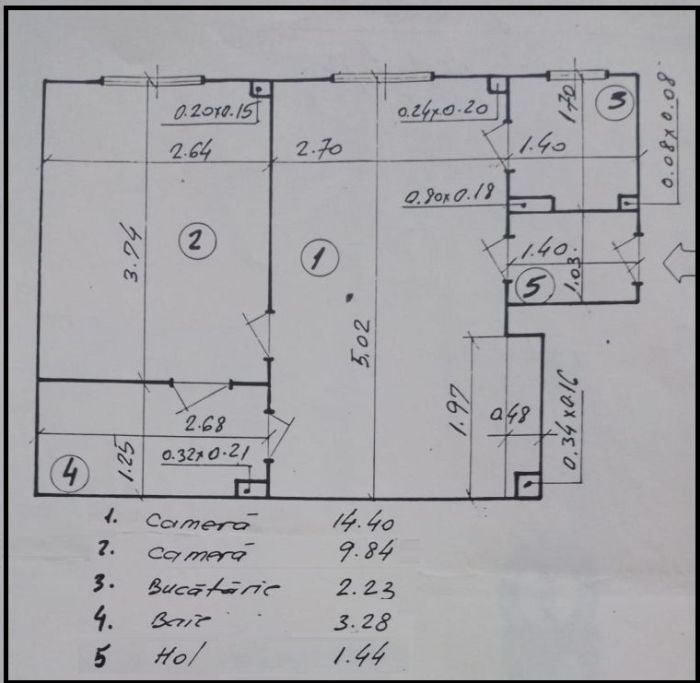 0.20x0.15
0.24x0.20
1.70
3
0.08x0.08
2.64
2.70
1.40
0.80x0.18
2
1
3.74
1.40
1.03
5
5.02
1.97
0.48
0.34x0.16
2.68
1.25
4
0.32x0.21
1. Cameră 14.40
2. Cameră 9.84
3. Bucătărie 2.23
4. Baie 3.28
5 Hol 1.44